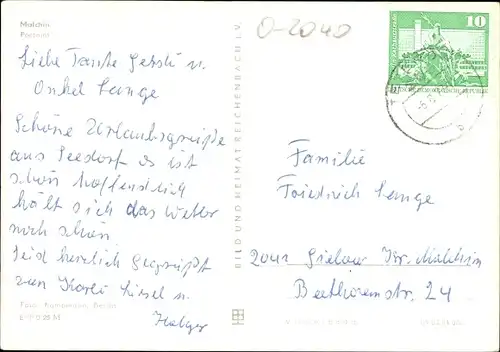 Malchin
Postamt
O-2040
10
Liebe Tante Gersti u.
Onkel Lange
Schöne Urlaubsgrüße
aus Seedorf es ist
schön hoffendlich
hält sich das Wetter
noch schön
Seid herzlich Gegrüßt
von Karli Liesel u.
Holger
BILD UND HEIMAT REICHENBACH I. V.
Familie
Friedrich Lange
2041 Gielow Kr. Malchin
Beethovenstr. 24